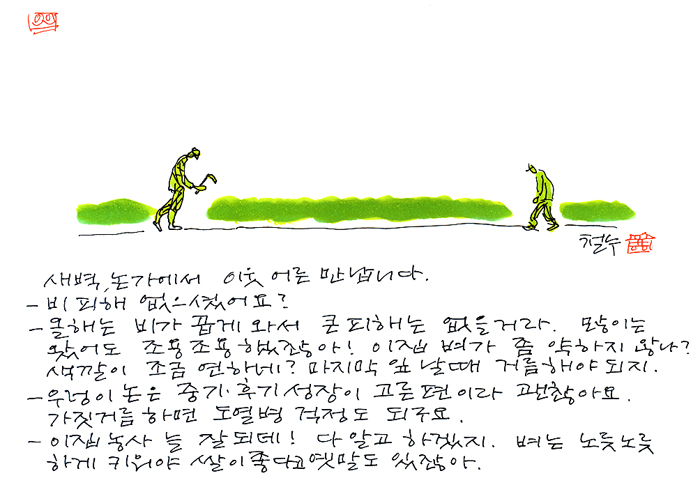 철수
새벽, 논가에서 이웃 어른 만납니다.
- 비 피해 없으셨어요?
- 올해는 비가 곱게 와서 큰 피해는 없을거라. 많이는
왔어도 조용조용 했잖아! 이집 벼가 좀 약하지 않나?
색깔이 조금 연하네? 마지막 잎 날때 거름해야 되지.
- 우렁이 논은 중기·후기성장이 고른 편이라 괜찮아요.
가짓거름 하면 도열병 걱정도 되구요.
- 이집 농사 늘 잘되데! 다 알고 하겠지. 벼는 노릇노릇
하게 키워야 쌀이 좋다고 옛말도 있잖아.